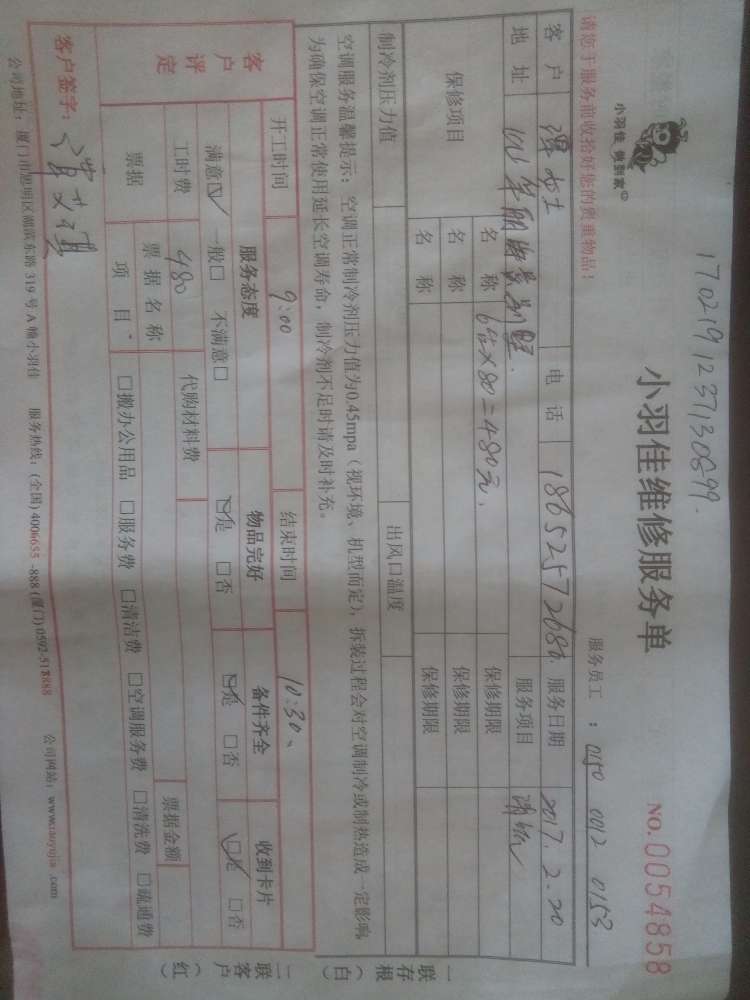 1702191237130899.
小羽佳 做到家
小羽佳维修服务单
NO.0054858
请您于服务前收拾好您的贵重物品:
服务员工 : 0150 0012 0153
客户 女士 电话 18652572686. 服务日期 2017.2.20
地址 服务项目 清洗
保修项目 名称 6台×80=480元. 保修期限
名称 保修期限
名称 保修期限
制冷剂压力值 出风口温度
空调服务温馨提示:空调正常制冷剂压力值为0.45mpa(视环境、机型而定),拆装过程会对空调制冷或制热造成一定影响,
为确保空调正常使用延长空调寿命,制冷剂不足时请及时补充。
开工时间 9:00 结束时间 10:30.
客户评定 服务态度 物品完好 备件齐全 收到卡片
满意☑ 一般□ 不满意□ ☑是 □否 ☑是 □否 ☑是 □否
工时费 480 代购材料费
票据 票据名称 票据金额
项目 □搬办公用品 □服务费 □清洁费 □空调服务费 □清洗费 □疏通费
客户签字:
公司地址:厦门市思明区湖滨东路 319 号 A 幢小羽佳 服务热线:(全国) 4006655 -888 (厦门) 0592-518888 公司网站:www.xiaoyujia .com
一联存根(白)
一联客户(红)